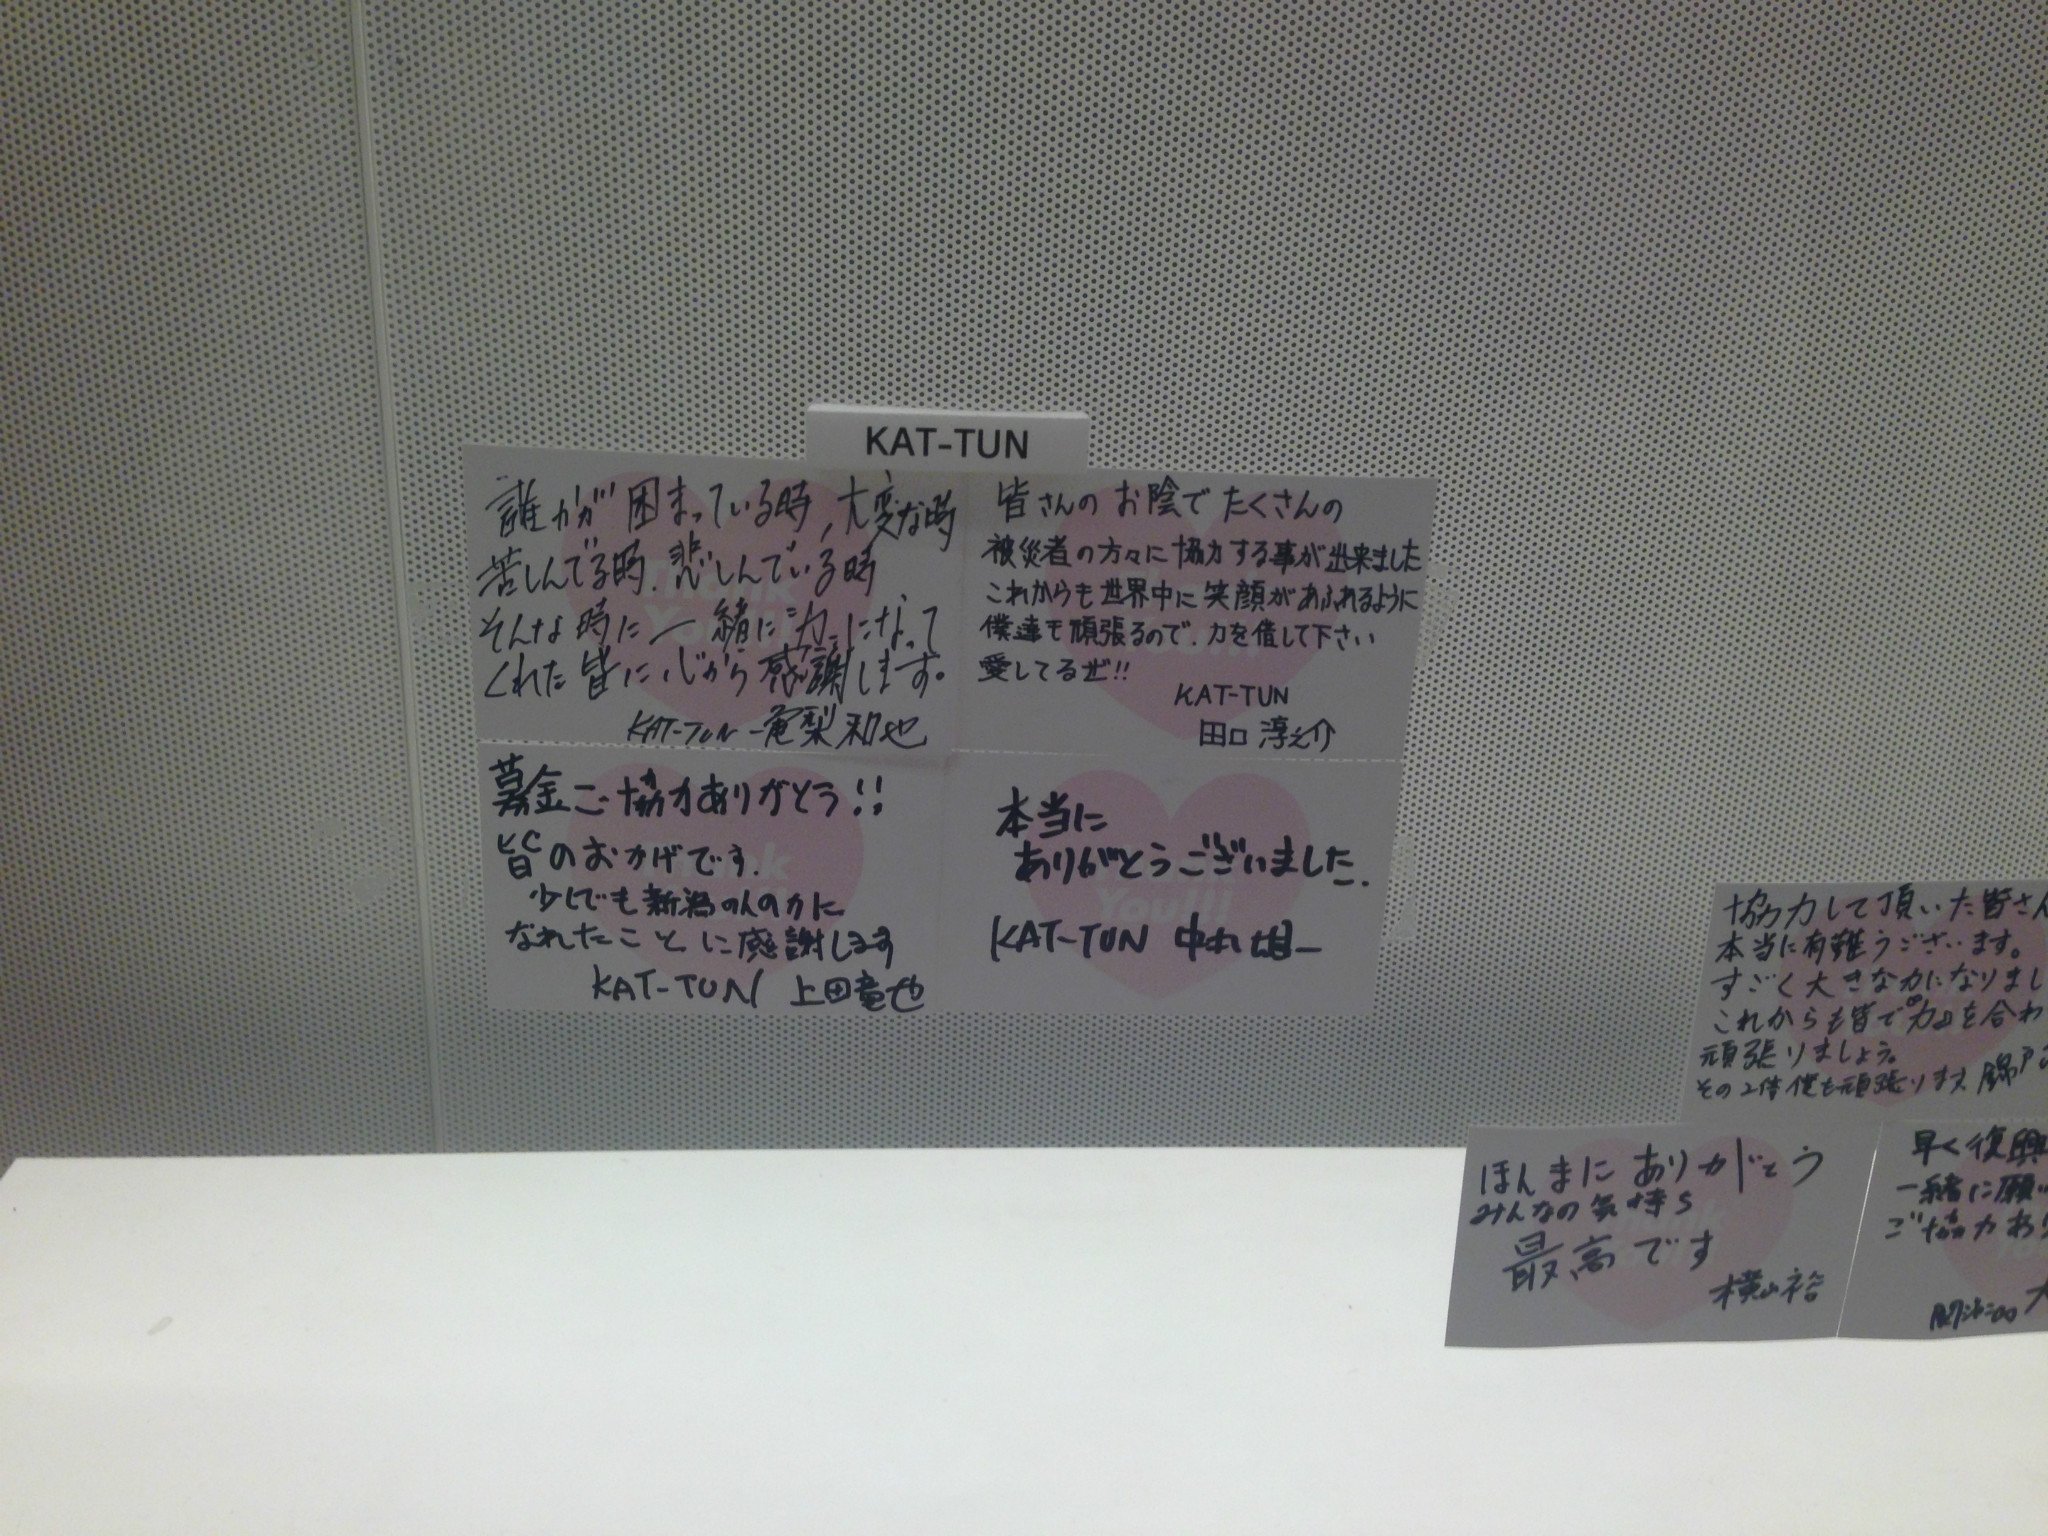 KAT-TUN
誰かが困まっている時,大変な時
苦しんでる時.悲しんでいる時
そんな時に一緒に力になって
くれた皆に心から感謝します。
KAT-TUN 亀梨和也
皆さんのお陰でたくさんの
被災者の方々に協力する事が出来ました
これからも世界中に笑顔があふれるように
僕達も頑張るので.力を借して下さい
愛してるぜ!!
KAT-TUN
田口淳之介
募金ご協力ありがとう!!
皆のおかげです.
少しでも新潟の人の力に
なれたことに感謝します
KAT-TUN 上田竜也
本当に
ありがとうございました.
KAT-TUN 中丸雄一
協力して頂いた皆さん
本当に有難うございます。
すごく大きな力になりまし
これからも皆で力を合わ
頑張りましょう。
その2倍僕も頑張ります 錦戸
ほんまにありがとう
みんなの気持ち
最高です
横山裕
早く復興
一緒に願い
ご協力あり
関ジャニ∞ 大